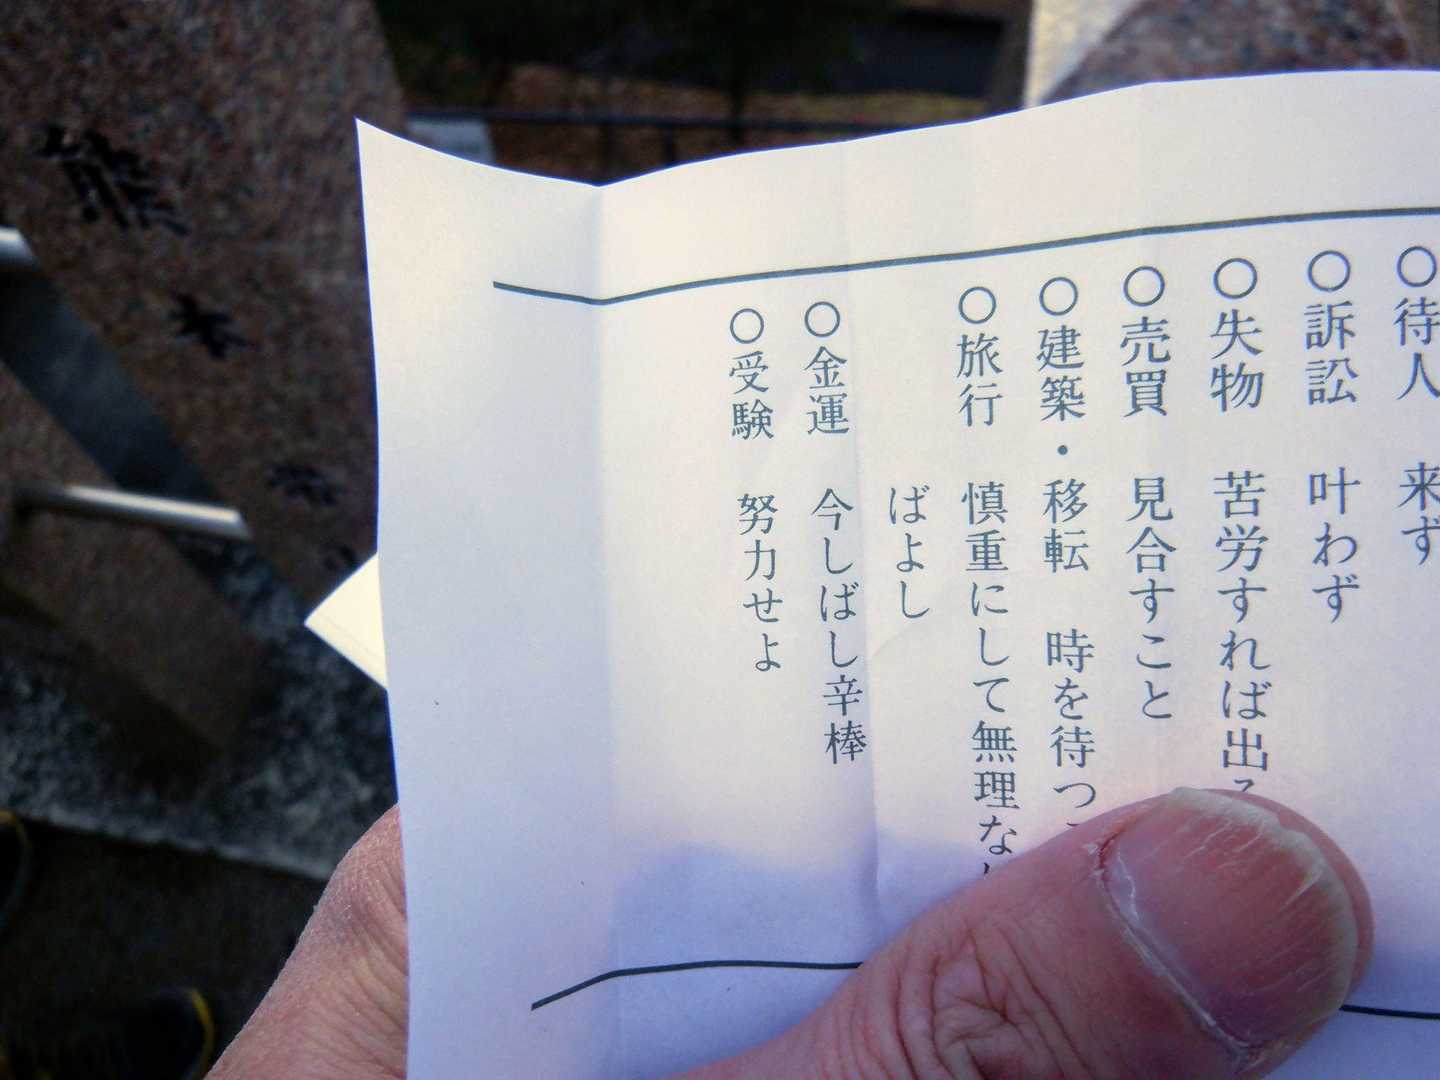 ○待人　来ず
○訴訟　叶わず
○失物　苦労すれば出る
○売買　見合すこと
○建築・移転　時を待つ
○旅行　慎重にして無理な
ばよし
○金運　今しばし辛棒
○受験　努力せよ